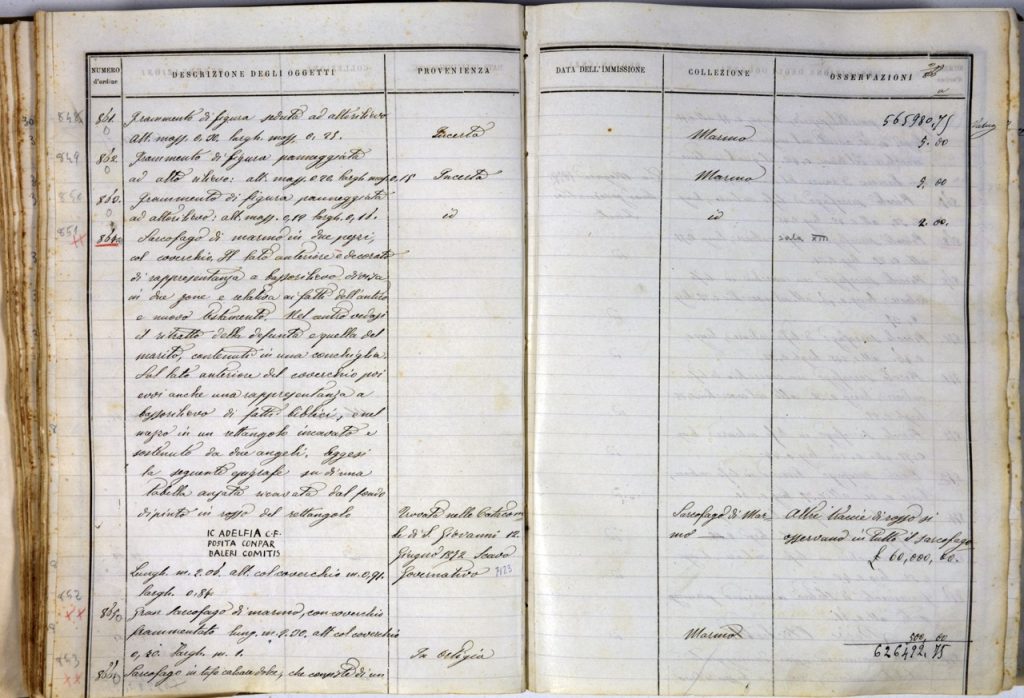 NUMERO d'ordine
DESCRIZIONE DEGLI OGGETTI
PROVENIENZA
DATA DELL'IMMISSIONE
COLLEZIONE
OSSERVAZIONI
565980,75
848
861. Frammento di figura seduta ad altorilievo
alt. mass. 0,20. largh. mass. 0,23. Incerta Marmo 5.00
849
862. Frammento di figura panneggiata
ad alto rilievo: alt. mass. 0.20. largh. mass. 0.15 Incerta Marmo 3.00
850
863. Frammento di figura panneggiata
ad altorilievo: alt. mass. 0,19 largh. 0,11. id id 2.00
851
864. Sarcofago di marmo in due pezzi, sala XIII
col coverchio. Il lato anteriore è decorato
di rappresentanza a bassorilievo divisa
in due zone e relativa ai fatti dell'antico
e nuovo testamento. Nel centro vedesi
il ritratto della defunta e quello del
marito, contenuti in una conchiglia.
Sul lato anteriore del coverchio poi
evvi anche una rappresentanza a
bassorilievo di fatti biblici, e nel
mezzo in un rettangolo incavato e
sostenuto da due angeli, leggesi
la seguente epigrafe su di una
tabella ansata ricavata dal fondo
dipinto in rosso del rettangolo
IC ADELFIA C·F·
POSITA CONPAR
BALERI COMITIS
Lungh. m. 2.06. alt. col coverchio m. 0,91.
largh. 0.84.
Trovato nelle Catacom
be di S. Giovanni 12.
Giugno 1872 Scavo
Governativo 7123
Sarcofago di Mar
mo
Altre traccie di rosso si
osservano in tutto il sarcofago
£ 60,000,00.
852
865. Gran Sarcofago di marmo, con coverchio
frammentato lung. m. 2.20, alt. col coverchio
0,30. largh. m. 1. In Ortigia Marmo 500,00
626492.75
853
Sarcofago in tufo calcare dolce, che consta di un